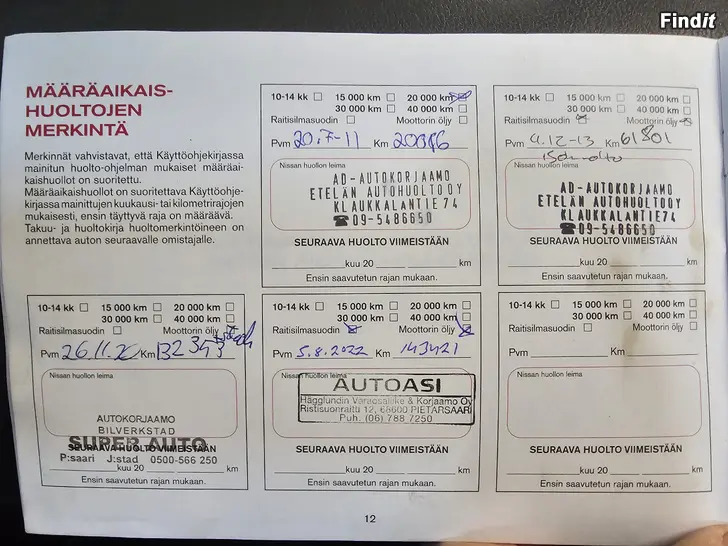 Findit
MÄÄRÄAIKAIS-
HUOLTOJEN
MERKINTÄ
Merkinnät vahvistavat, että Käyttöohjekirjassa
mainitun huolto-ohjelman mukaiset määräai-
kaishuollot on suoritettu.
Määräaikaishuollot on suoritettava Käyttöohje-
kirjassa mainittujen kuukausi- tai kilometrirajojen
mukaisesti, ensin täyttyvä raja on määräävä.
Takuu- ja huoltokirja huoltomerkintöineen on
annettava auton seuraavalle omistajalle.
10-14 kk 15 000 km 20 000 km
30 000 km 40 000 km
Raitisilmasuodin Moottorin öljy
Pvm 20.7-11 Km 20886
Nissan huollon leima
AD-AUTOKORJAAMO
ETELÄN AUTOHUOLTO OY
KLAUKKALANTIE 74
☎ 09-5486650
SEURAAVA HUOLTO VIIMEISTÄÄN
kuu 20 km
Ensin saavutetun rajan mukaan.
10-14 kk 15 000 km 20 000 km
30 000 km 40 000 km
Raitisilmasuodin Moottorin öljy
Pvm 4.12-13 Km 61801
Nissan huollon leima
AD-AUTOKORJAAMO
ETELÄN AUTOHUOLTO OY
KLAUKKALANTIE 74
☎ 09-5486650
SEURAAVA HUOLTO VIIMEISTÄÄN
kuu 20 km
Ensin saavutetun rajan mukaan.
10-14 kk 15 000 km 20 000 km
30 000 km 40 000 km
Raitisilmasuodin Moottorin öljy
Pvm 26.11.20 Km 132 343
Nissan huollon leima
AUTOKORJAAMO
BILVERKSTAD
SUPER AUTO
SEURAAVA HUOLTO VIIMEISTÄÄN
P:saari J:stad 0500-566 250
kuu 20 km
Ensin saavutetun rajan mukaan.
10-14 kk 15 000 km 20 000 km
30 000 km 40 000 km
Raitisilmasuodin Moottorin öljy
Pvm 5.8.2022 Km 143421
Nissan huollon leima
AUTOASI
Hägglundin Varaosaliike & Korjaamo Oy
Ristisuonraitti 12, 68600 PIETARSAARI
Puh. (06) 788 7250
SEURAAVA HUOLTO VIIMEISTÄÄN
kuu 20 km
Ensin saavutetun rajan mukaan.
10-14 kk 15 000 km 20 000 km
30 000 km 40 000 km
Raitisilmasuodin Moottorin öljy
Pvm Km
Nissan huollon leima
SEURAAVA HUOLTO VIIMEISTÄÄN
kuu 20 km
Ensin saavutetun rajan mukaan.
12